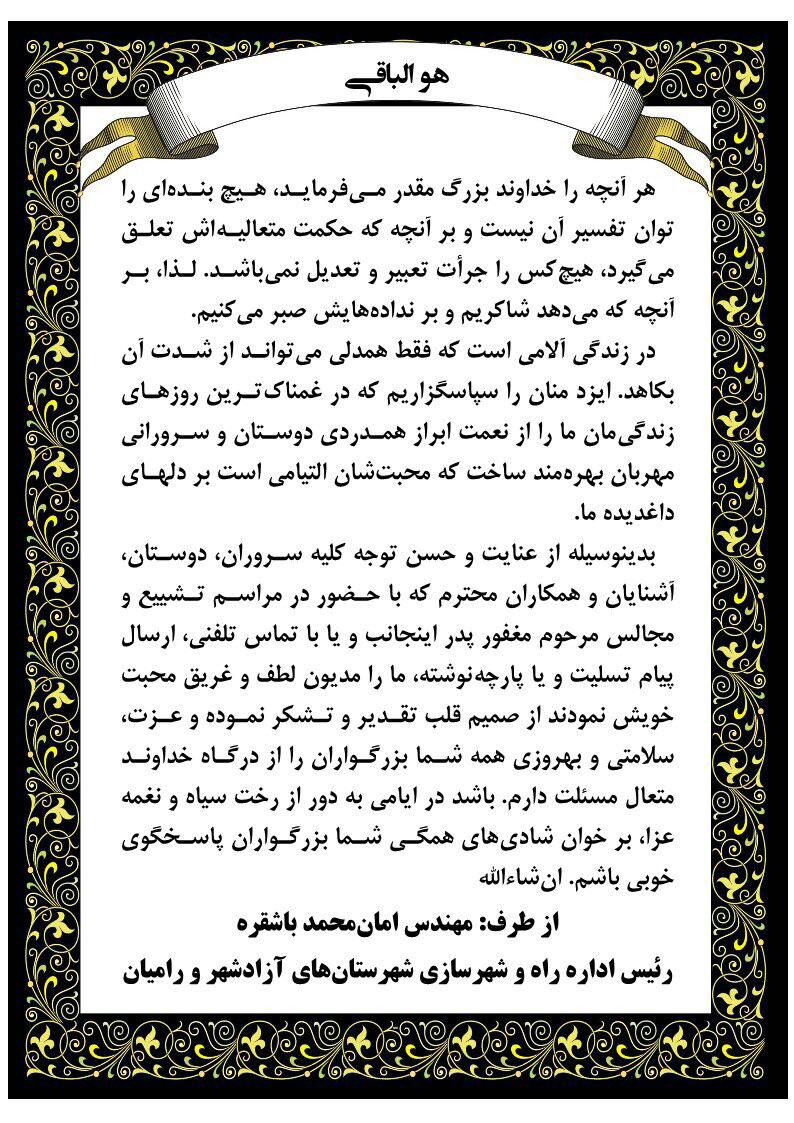 هو الباقی
هر آنچه را خداوند بزرگ مقدر می‌فرماید، هیچ بنده‌ای را
توان تفسیر آن نیست و بر آنچه که حکمت متعالیه‌اش تعلق
می‌گیرد، هیچ‌کس را جرأت تعبیر و تعدیل نمی‌باشد. لذا، بر
آنچه که می‌دهد شاکریم و بر نداده‌هایش صبر می‌کنیم.
در زندگی آلامی است که فقط همدلی می‌تواند از شدت آن
بکاهد. ایزد منان را سپاسگزاریم که در غمناک‌ترین روزهای
زندگی‌مان ما را از نعمت ابراز همدردی دوستان و سرورانی
مهربان بهره‌مند ساخت که محبت‌شان التیامی است بر دلهای
داغدیده ما.
بدینوسیله از عنایت و حسن توجه کلیه سروران، دوستان،
آشنایان و همکاران محترم که با حضور در مراسم تشییع و
مجالس مرحوم مغفور پدر اینجانب و یا با تماس تلفنی، ارسال
پیام تسلیت و یا پارچه‌نوشته، ما را مدیون لطف و غریق محبت
خویش نمودند از صمیم قلب تقدیر و تشکر نموده و عزت،
سلامتی و بهروزی همه شما بزرگواران را از درگاه خداوند
متعال مسئلت دارم. باشد در ایامی به دور از رخت سیاه و نغمه
عزا، بر خوان شادی‌های همگی شما بزرگواران پاسخگوی
خوبی باشم. ان‌شاءالله
از طرف: مهندس امان‌محمد باشقره
رئیس اداره راه و شهرسازی شهرستان‌های آزادشهر و رامیان